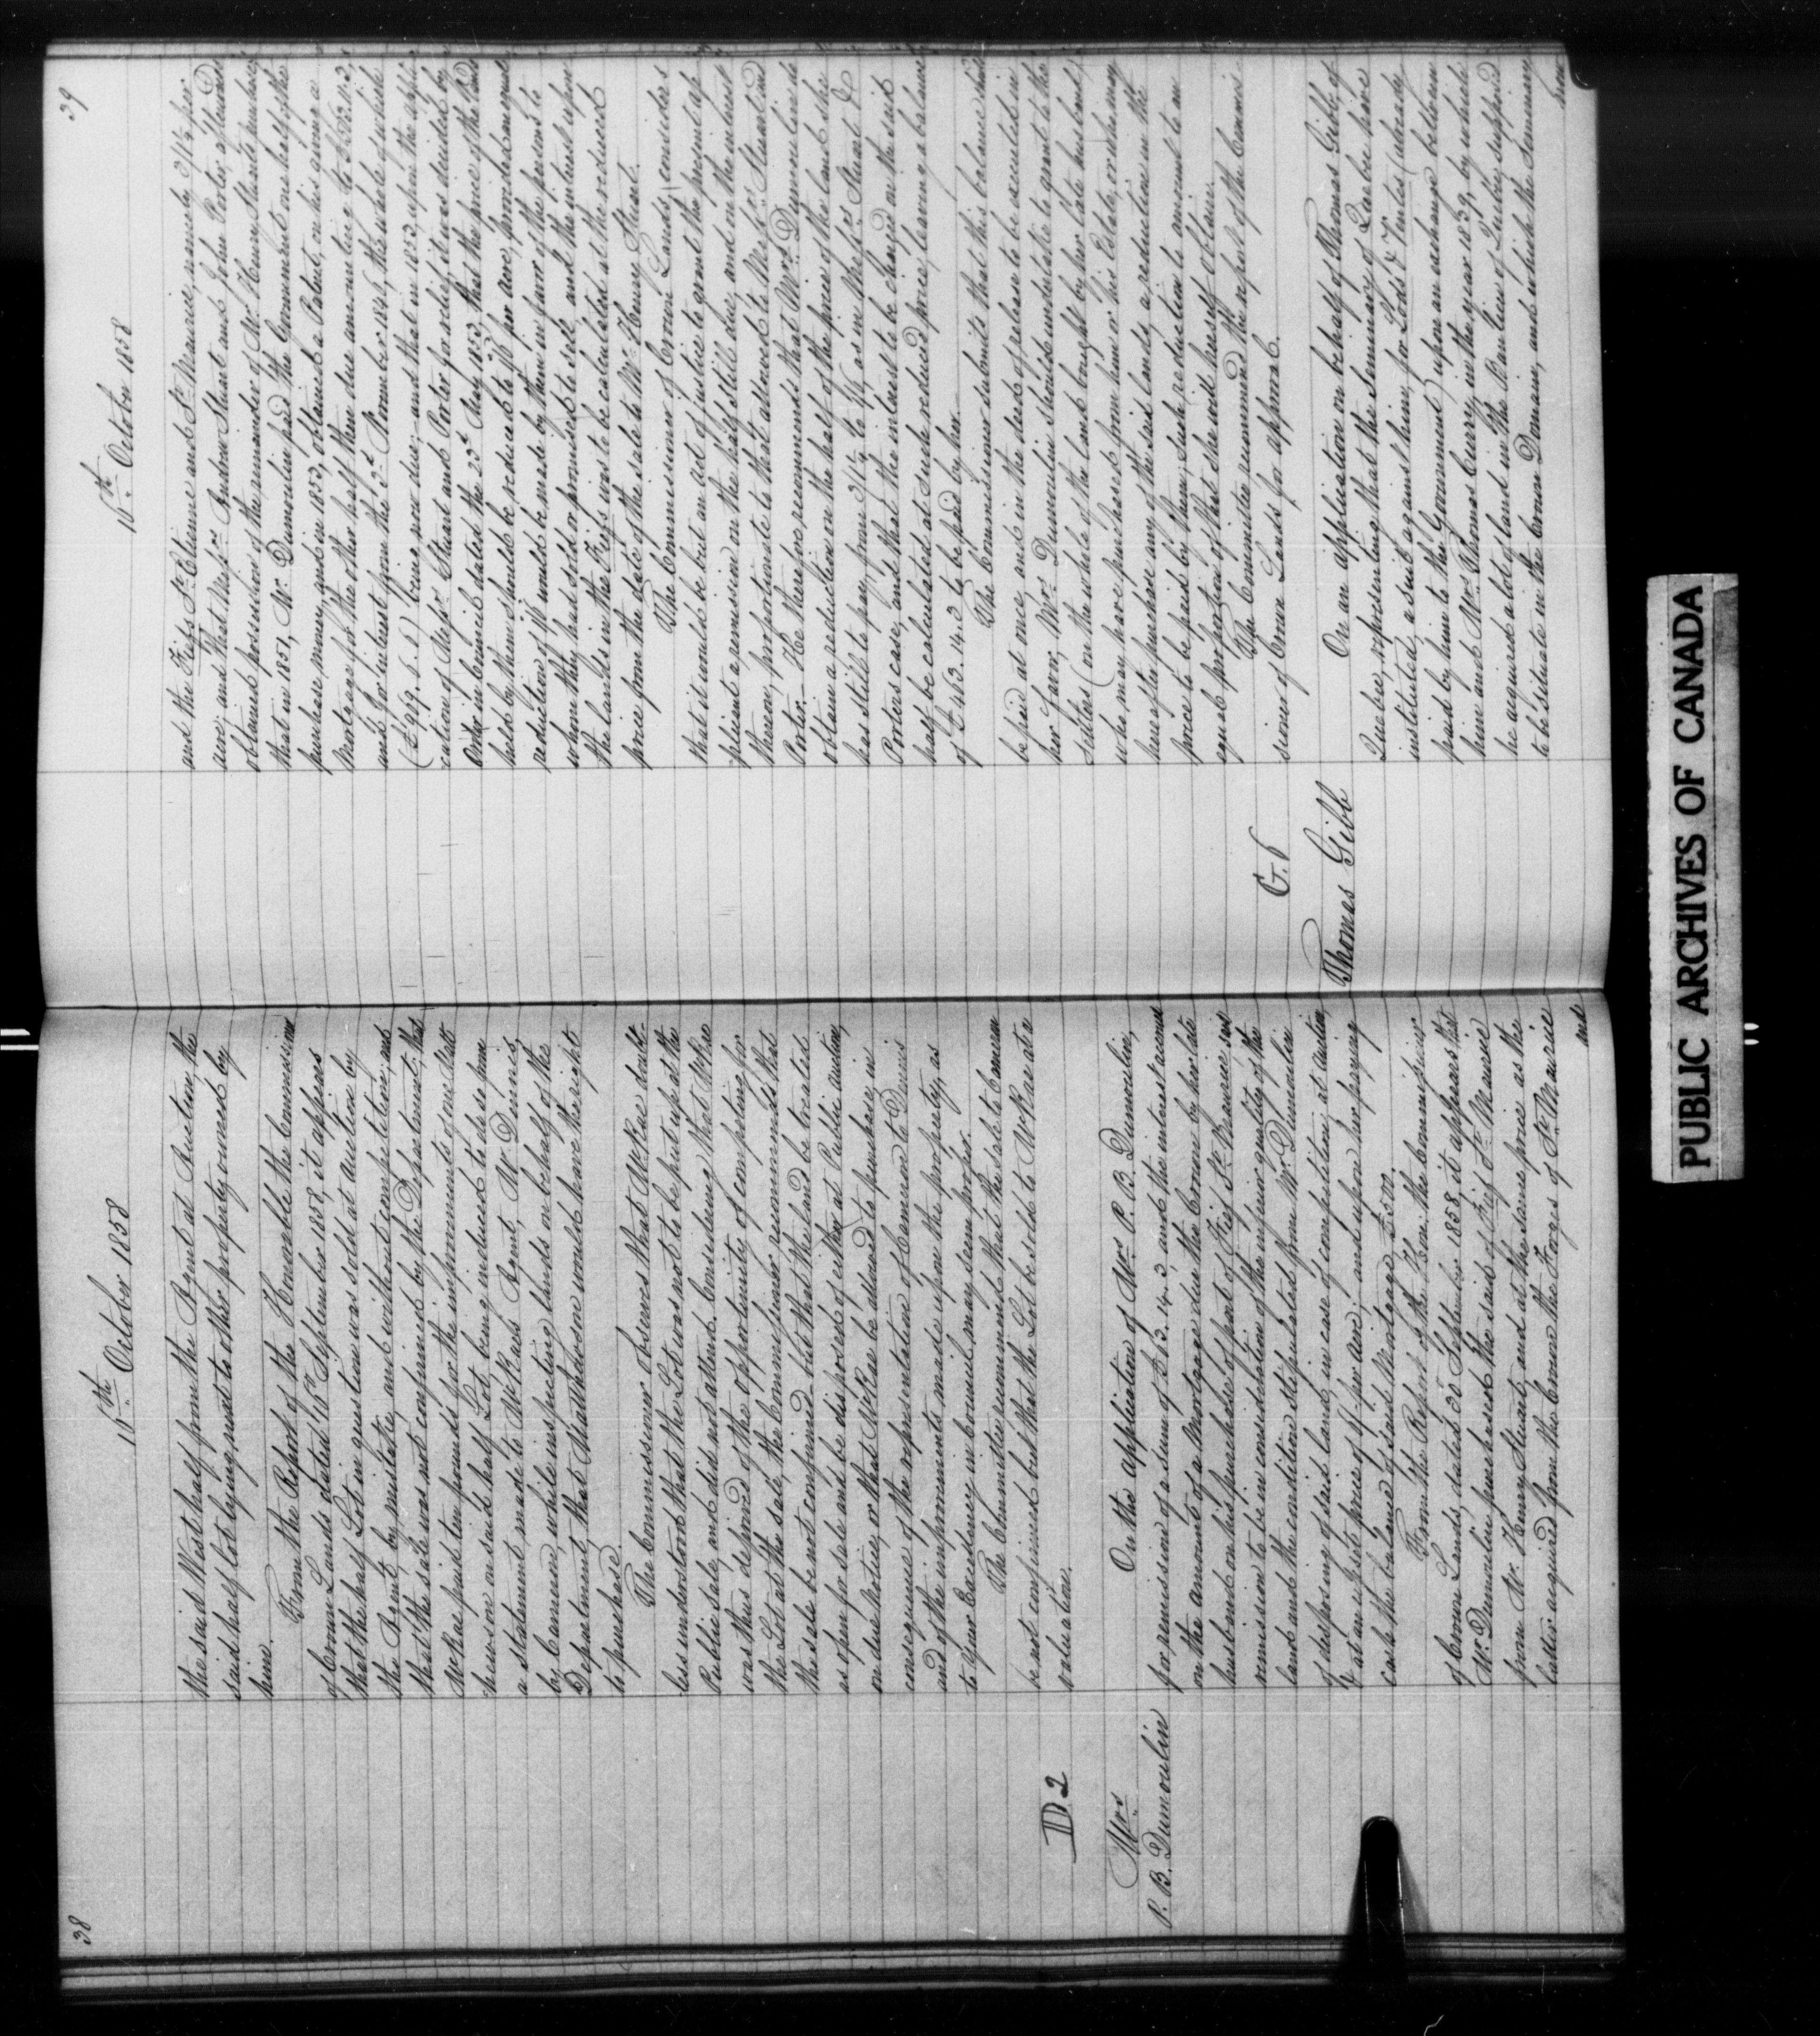 38
15th October 1858
the said West half from the Agent at Auction, the
said half lot lying next to other property owned by
him.
From the Report of the Honorable the Commissioner
of Crown Lands dated 10th September 1858, it appears
that the half Lot in question was sold at auction by
the Agent, by mistake, and without competition; and
that the sale was not confirmed by the Department; that
McRae paid ten pounds for the improvements of one
hewson on said half Lot, being induced to do so from
a statement, made to McRae's Agent, Mr. Dennis,
by Cameron, while inspecting lands on behalf of the
Department, that Mathewson would have the right
to purchase.
The Commissioner observes that McRae doubt-
less understood that the Lot was not to be put up at the
Public sale, and did not attend. Considering that McRae
was thus deprived of the opportunity of competing for
the Lot at the sale, the Commissioner recommends that
the sale be not confirmed, but that the land be treated
as open for sale and be disposed of either at Public auction,
on due notice, or that McRae be allowed to purchase, in
consequence of the representation of Cameron to Dennis
and of the improvements made upon the property, as
to Your Excellency in Council may seem proper.
The Committee recommend that the sale to Cameron
be not confirmed but that the Lot be sold to McRae at a
valuation.
D 2
Mrs
P. B. Dumoulin
On the application of Mrs. P. B. Dumoulin,
for remission of a sum of £463.14.3, and the interest accrued
on the amount of a Mortgage due the Crown by her late
husband on his purchase of part of Fief St. Maurice said
remission to be in consideration of the inferior quality of the
land and the condition stipulated from Mr. Dumoulin
of disposing of said land, in case of competition, at auction,
at an upset price of per acre; and upon her paying
cash the balance of said Mortgage £500.
From the Report of the Hon: the Commissioner
of Crown Lands, dated 30th September 1858, it appears that
Mr. Dumoulin purchased the said Fief St. Maurice
from Mr. Henry Stuart, and at the same price as the
latter acquired from the Crown the Forges of St. Maurice
and
39
15th October 1858
and the Fiefs St. Etienne and St. Maurice, namely 3/1½ per
acre; and that Messrs. Andrew Stuart and John Porter, afterwards
obtained possession of the remainder of Mr. Henry Stuart's purchase;
that in 1851, Mr. Dumoulin paid the Government one half of the
purchase money, and in 1853, obtained a Patent, on his giving a
Mortgage for the other half then due amounting to
and for interest from the 3d November 1846, (the whole of which
(£969.6.6) being now due,) and that in 1853, upon the appli-
cation of Messrs. Stuart and Porter for relief, it was decided by
Order in Council dated the 23d May 1853, that the price of the lands
held by them should be reduced to 1/6 per acre, provided an equal
reduction of would be made by them in favor of the persons to
whom they had sold or promised to sell and the interest upon
the lands in the Fiefs was to be calculated at the reduced
price from the date of the sale to Mr. Henry Stuart.
The Commissioner of Crown Lands, considers
that it would be but an act of justice to grant the present ap-
plicant a remission on the half still due, and on the interest
thereon, proportionate to that allowed to Messrs. Stuart and
Porter. He therefore recommends that Mrs. Dumoulin do
obtain a reduction on the half of the price of the land she
has still to pay, from 3/1½ to 1/6 as in Messrs. Stuart &
Porters case, and that the interest to be charged on the said
half be calculated at such reduced price, leaving a balance
of £463.14.3 to be paid by her.
The Commissioner submits that this balance should
be paid at once and in the deed of release to be executed in
her favor, Mrs. Dumoulin should undertake to grant to the
settlers (on the whole of the land bought by her late husband)
who may have purchased from him or his Estate, or who may
hereafter purchase any of the said lands, a reduction in the
price to be paid by them; such reduction to amount to an
equal proportion of that she will herself obtain.
The Committee recommend the report of the Commis-
sioner of Crown Lands for approval.
G. 6
Thomas Gibb
On an application on behalf of Thomas Gibb, of
Quebec, representing that the Seminary of Quebec have
instituted a suit against him, for Lods & Ventes (already
paid by him to the Government) upon an exchange between
him and Mrs. Thomas Curry, in the year 1839, by which
he acquired a lot of land in the Banlieu of Quebec, supposed
to be situate in the Crown Domain, and which the Seminary
have
PUBLIC ARCHIVES OF CANADA